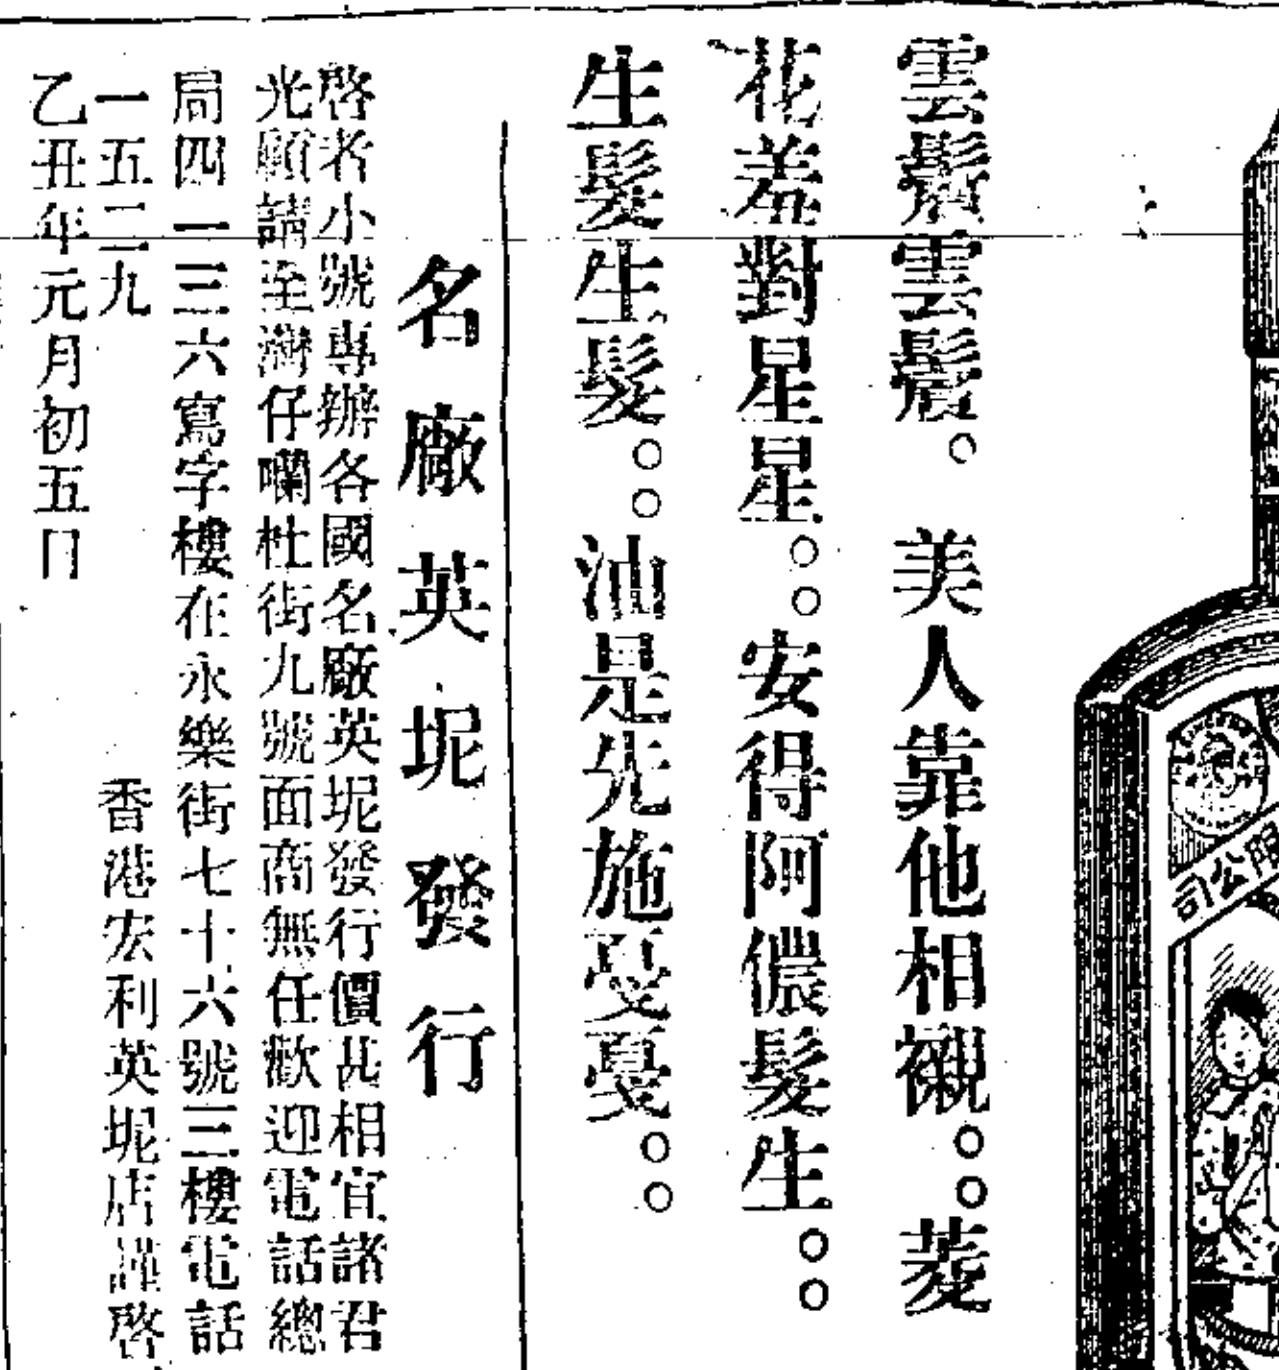 雲鬢雲鬟。美人靠他相襯。。菱
花羞對星星。。安得阿儂髮生。。
生髮生髮。。油是先施戞戞。。
名廠英坭發行
啓者小號專辦各國名廠英坭發行價甚相宜諸君
光顧請至灣仔囒杜街九號面商無任歡迎電話總
局四一三六寫字樓在永樂街七十六號三樓電話
一五二九
香港宏利英坭店謹啓
乙丑年元月初五日
限公司